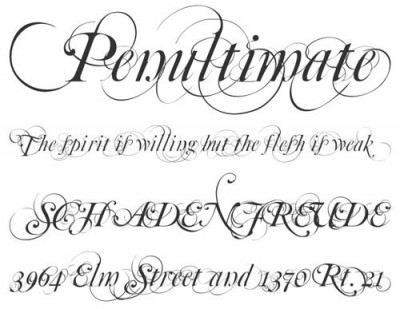 Penultimate
The ſpirit iſ willing but the fleſh iſ weak
SCHADENFREUDE
3964 Elm Street and 1370 Rt. 21